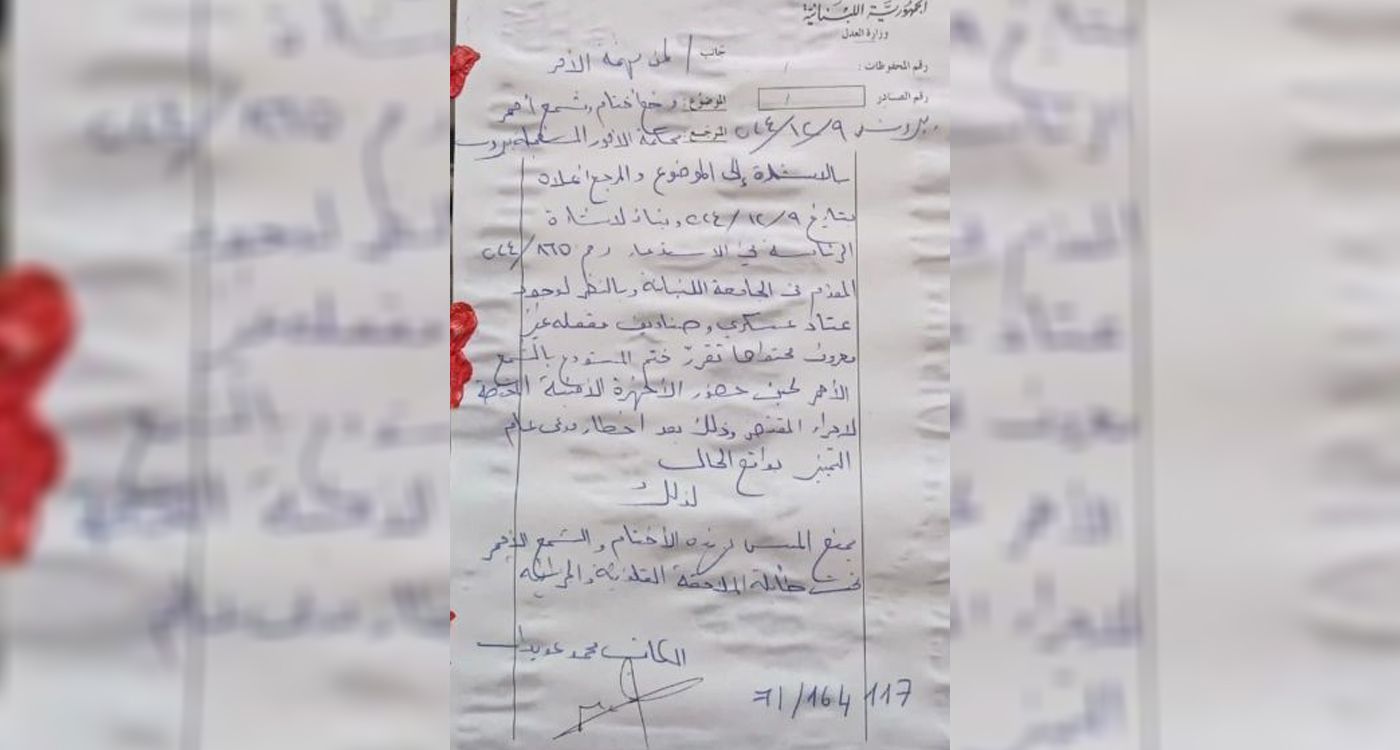 الجمهورية اللبنانية
وزارة العدل
رقم المحفوظات : /
جانب / لمن يهمه الأمر
رقم الصادر /
الموضوع: وضع أختام وشمع أحمر
بيروت في ٢٠٢٤/١٢/٩
المرجع: محكمة الأمور المستعجلة بيروت
بالاستناد إلى الموضوع والمرجع أعلاه
بتاريخ ٢٠٢٤/١٢/٩ وبناء لإشارة
الرئاسة في الاستدعاء رقم ٨٦٥/٢٠٢٤
المقدم من الجامعة اللبنانية وبالنظر لوجود
عتاد عسكري وصناديق مقفلة غير
معروف محتواها تقرر ختم المستودع بالشمع
الأحمر لحين حضور الأجهزة الأمنية المختصة
لإجراء المقتضى وذلك بعد اخطار مدعي عام
التمييز بواقع الحال
لذلك
يمنع المس بهذه الأختام والشمع الأحمر
تحت طائلة الملاحقة القانونية والجزائية
الكاتب محمد عويدات
71/164 117